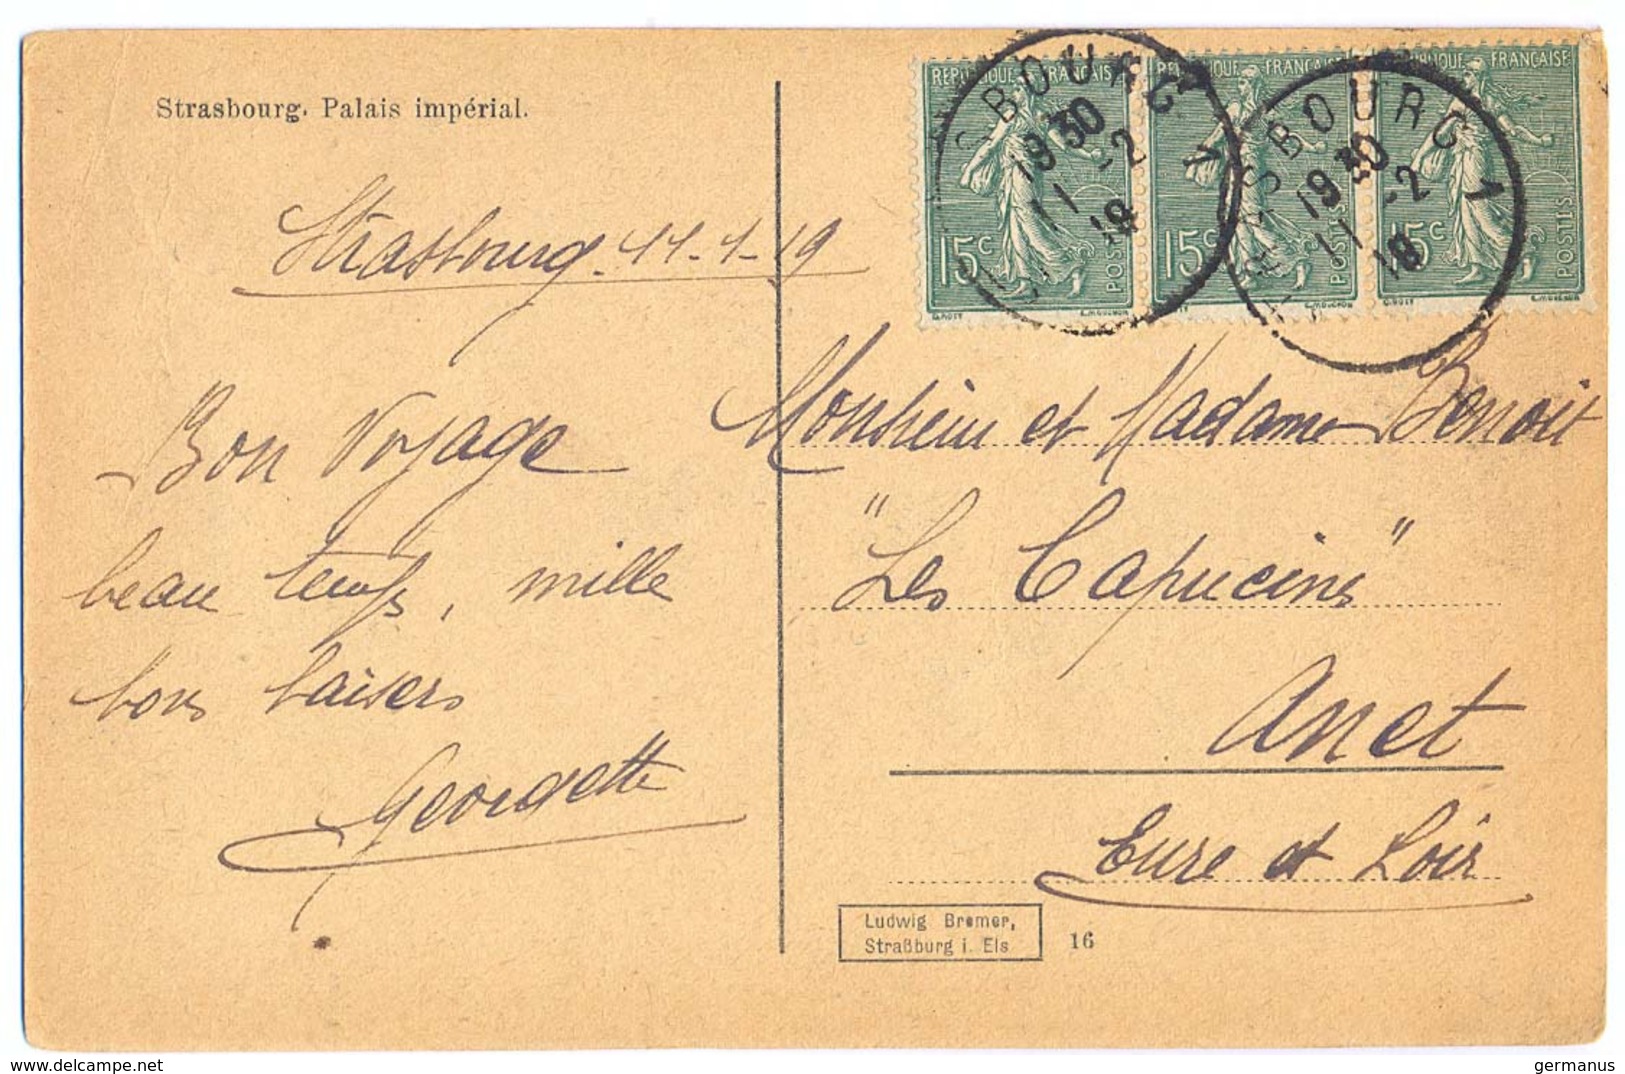 Strasbourg. Palais impérial.
Strasbourg. 11-1-19
Bon Voyage
beau temps, mille
bons baisers
Georgette
RÉPUBLIQUE FRANÇAISE
15c
POSTES
O.ROTY
E.MOUCHON
RÉPUBLIQUE FRANÇAISE
15c
RÉPUBLIQUE FRANÇAISE
15c
POSTES
O.ROTY
E.MOUCHON
SBOURG 1
19 30
11 -2
19
STRASBOURG 1
19 30
11 -2
19
Monsieur et Madame Benoit
"Les Capucins"
Anet
Eure et Loir
Ludwig Bremer,
Straßburg i. Els
16
germanus